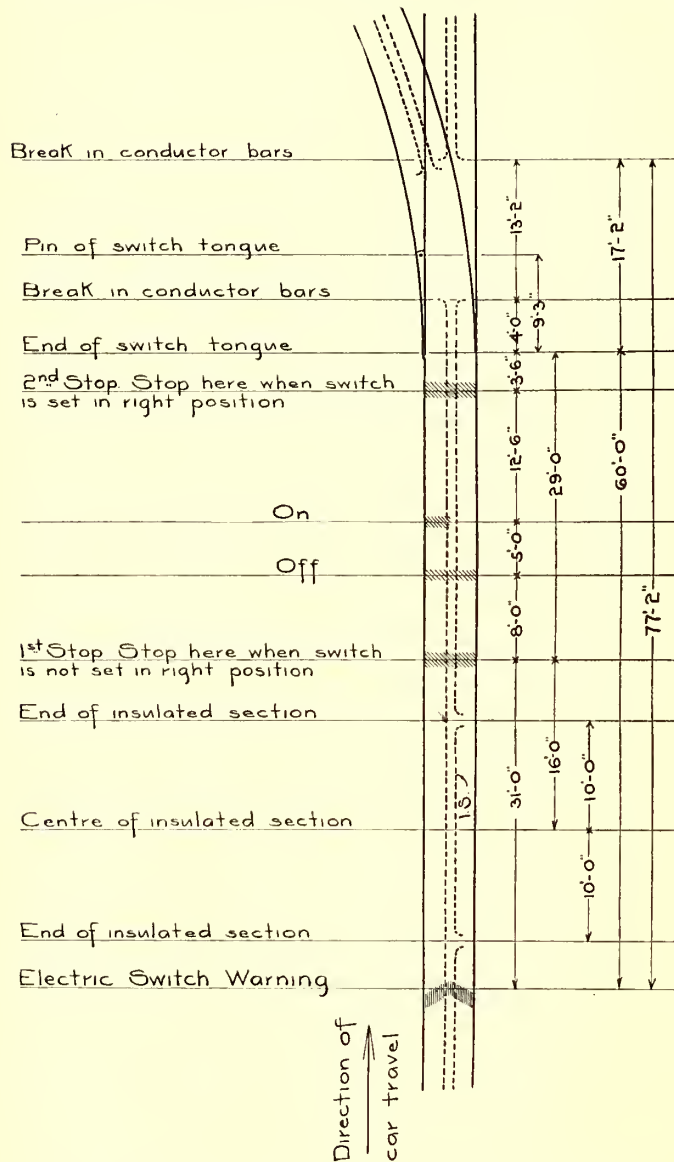 Break in conductor bars
Pin of switch tongue
Break in conductor bars
End of switch tongue
2nd Stop. Stop here when switch
is set in right position
On
Off
1st Stop Stop here when switch
is not set in right position
End of insulated section
Centre of insulated section
End of insulated section
Electric Switch Warning
Direction of
car travel
I.S.
13'-2"
4'-0"
3'-6"
12'-6"
5'-0"
8'-0"
31'-0"
9'-3"
29'-0"
16'-0"
10'-0"
10'-0"
17'-2"
60'-0"
77'-2"